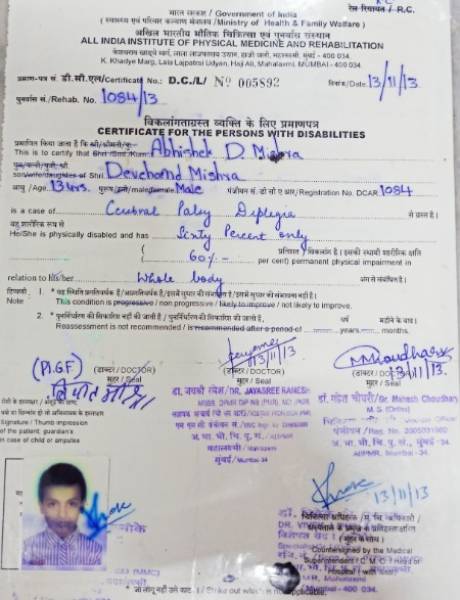 रेल रियायत / R.C.
भारत सरकार / Government of India
(स्वास्थ्य एवं परिवार कल्याण मंत्रालय / Ministry of Health & Family Welfare)
अखिल भारतीय भौतिक चिकित्सा एवं पुनर्वास संस्थान
ALL INDIA INSTITUTE OF PHYSICAL MEDICINE AND REHABILITATION
केशवराव खाड्ये मार्ग, लाला लाजपतराय उद्यान, हाजी अली, महालक्ष्मी, मुंबई - 400 034.
K. Khadye Marg, Lala Lajpatrai Udyan, Haji Ali, Mahalaxmi, MUMBAI - 400 034
प्रमाण-पत्र सं. डी.सी.एल/Certificate No.: D.C./L/ Nº 005892 दिनांक/Date 13/11/13
पुनर्वास सं./Rehab. No. 1084/13
विकलांगताग्रस्त व्यक्ति के लिए प्रमाणपत्र
CERTIFICATE FOR THE PERSONS WITH DISABILITIES
प्रमाणित किया जाता है कि श्री/श्रीमती/कु.
This is to certify that Shri/Smt./Kum. Abhishek D. Mishra
son/wife/daughter of Shri Devchand Mishra
आयु / Age. 13 yrs. पुरुष/स्त्री/male/female Male पंजीयन सं. डी सी ए आर/Registration No. DCAR 1084
is a case of Cerebral Palsy Diplegia से ग्रस्त है।
वह शारीरिक रूप से
He/She is physically disabled and has Sixty Percent only
प्रतिशत विकलांग है। इसकी स्थायी शारीरिक क्षति
( 60%- per cent) permanent physical impairment in
relation to his/her Whole body अंग से संबंधित है।
टिप्पणी 1. * यह स्थिति प्रगतिवर्धक है/अप्रगतिवर्धक है/इसमें सुधार की संभावना है/इसमें सुधार की संभावना नहीं है।
Note : This condition is progressive / non progressive / likely to improve / not likely to improve.
2. * पुनर्निर्धारण की सिफारिश नहीं की जाती है / पुनर्निर्धारण की सिफारिश की जाती है, वर्ष महीने के बाद।
Reassessment is not recommended / is recommended after a period of years months.
13/11/13 13/11/13
(PIGF) (डाक्टर / DOCTOR) (डाक्टर / DOCTOR) (डाक्टर / DOCTOR)
मुहर / Seal मुहर / Seal मुहर / Seal
डा. जयश्री रमेश/DR. JAYASREE RAMESH
डा. महेश चौधरी/Dr. Mahesh Choudhary
M.S. (Ortho)
Signature / Thumb impression
of the patient, guardian's
in case of child or amputee
महालक्ष्मी
मुंबई/Mumbai-34
AIIPMR, Mumbai-34
13/11/13
Countersigned by the Medical
Superintendent / C.M.O. / Head of
Hospital (with seal)
* जो लागू नहीं उसे काटें / Strike out which is not applicable